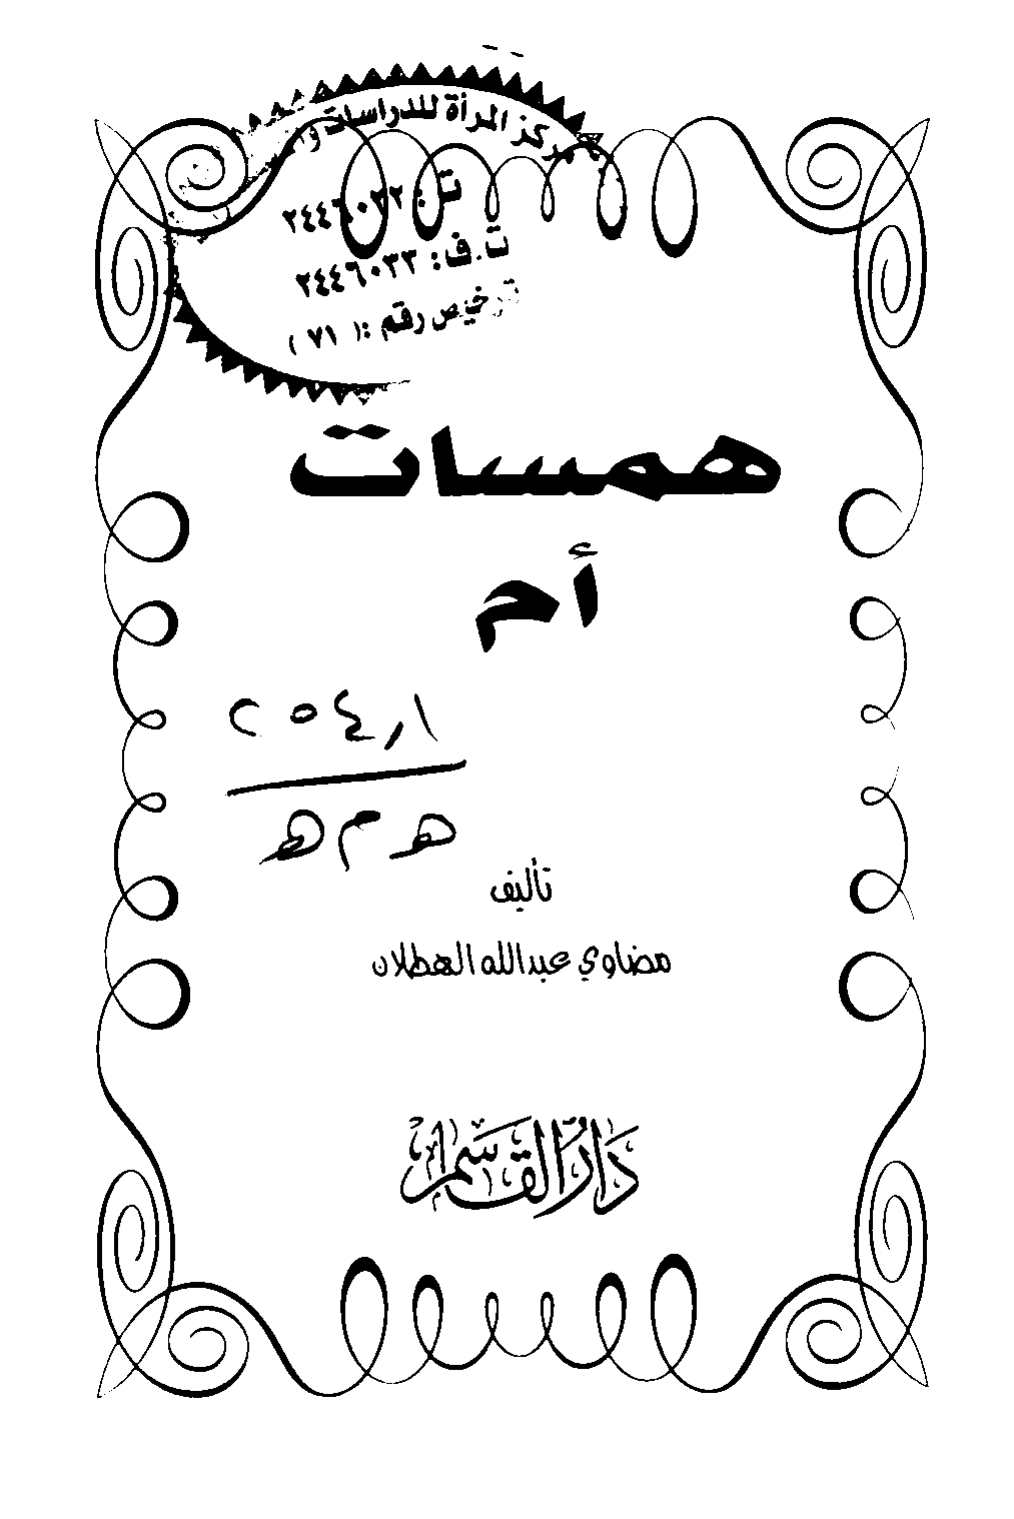 مركز المرأة للدراسات
ت: ٢٤٤٦٠٢٢
ت.ف: ٢٤٤٦٠٣٣
ترخيص رقم: (٧١)
همسات
أم
٢٥٤٫١
هـ م هـ
تأليف
مضاوي عبدالله الهطلان
دَارُ القَاسِم